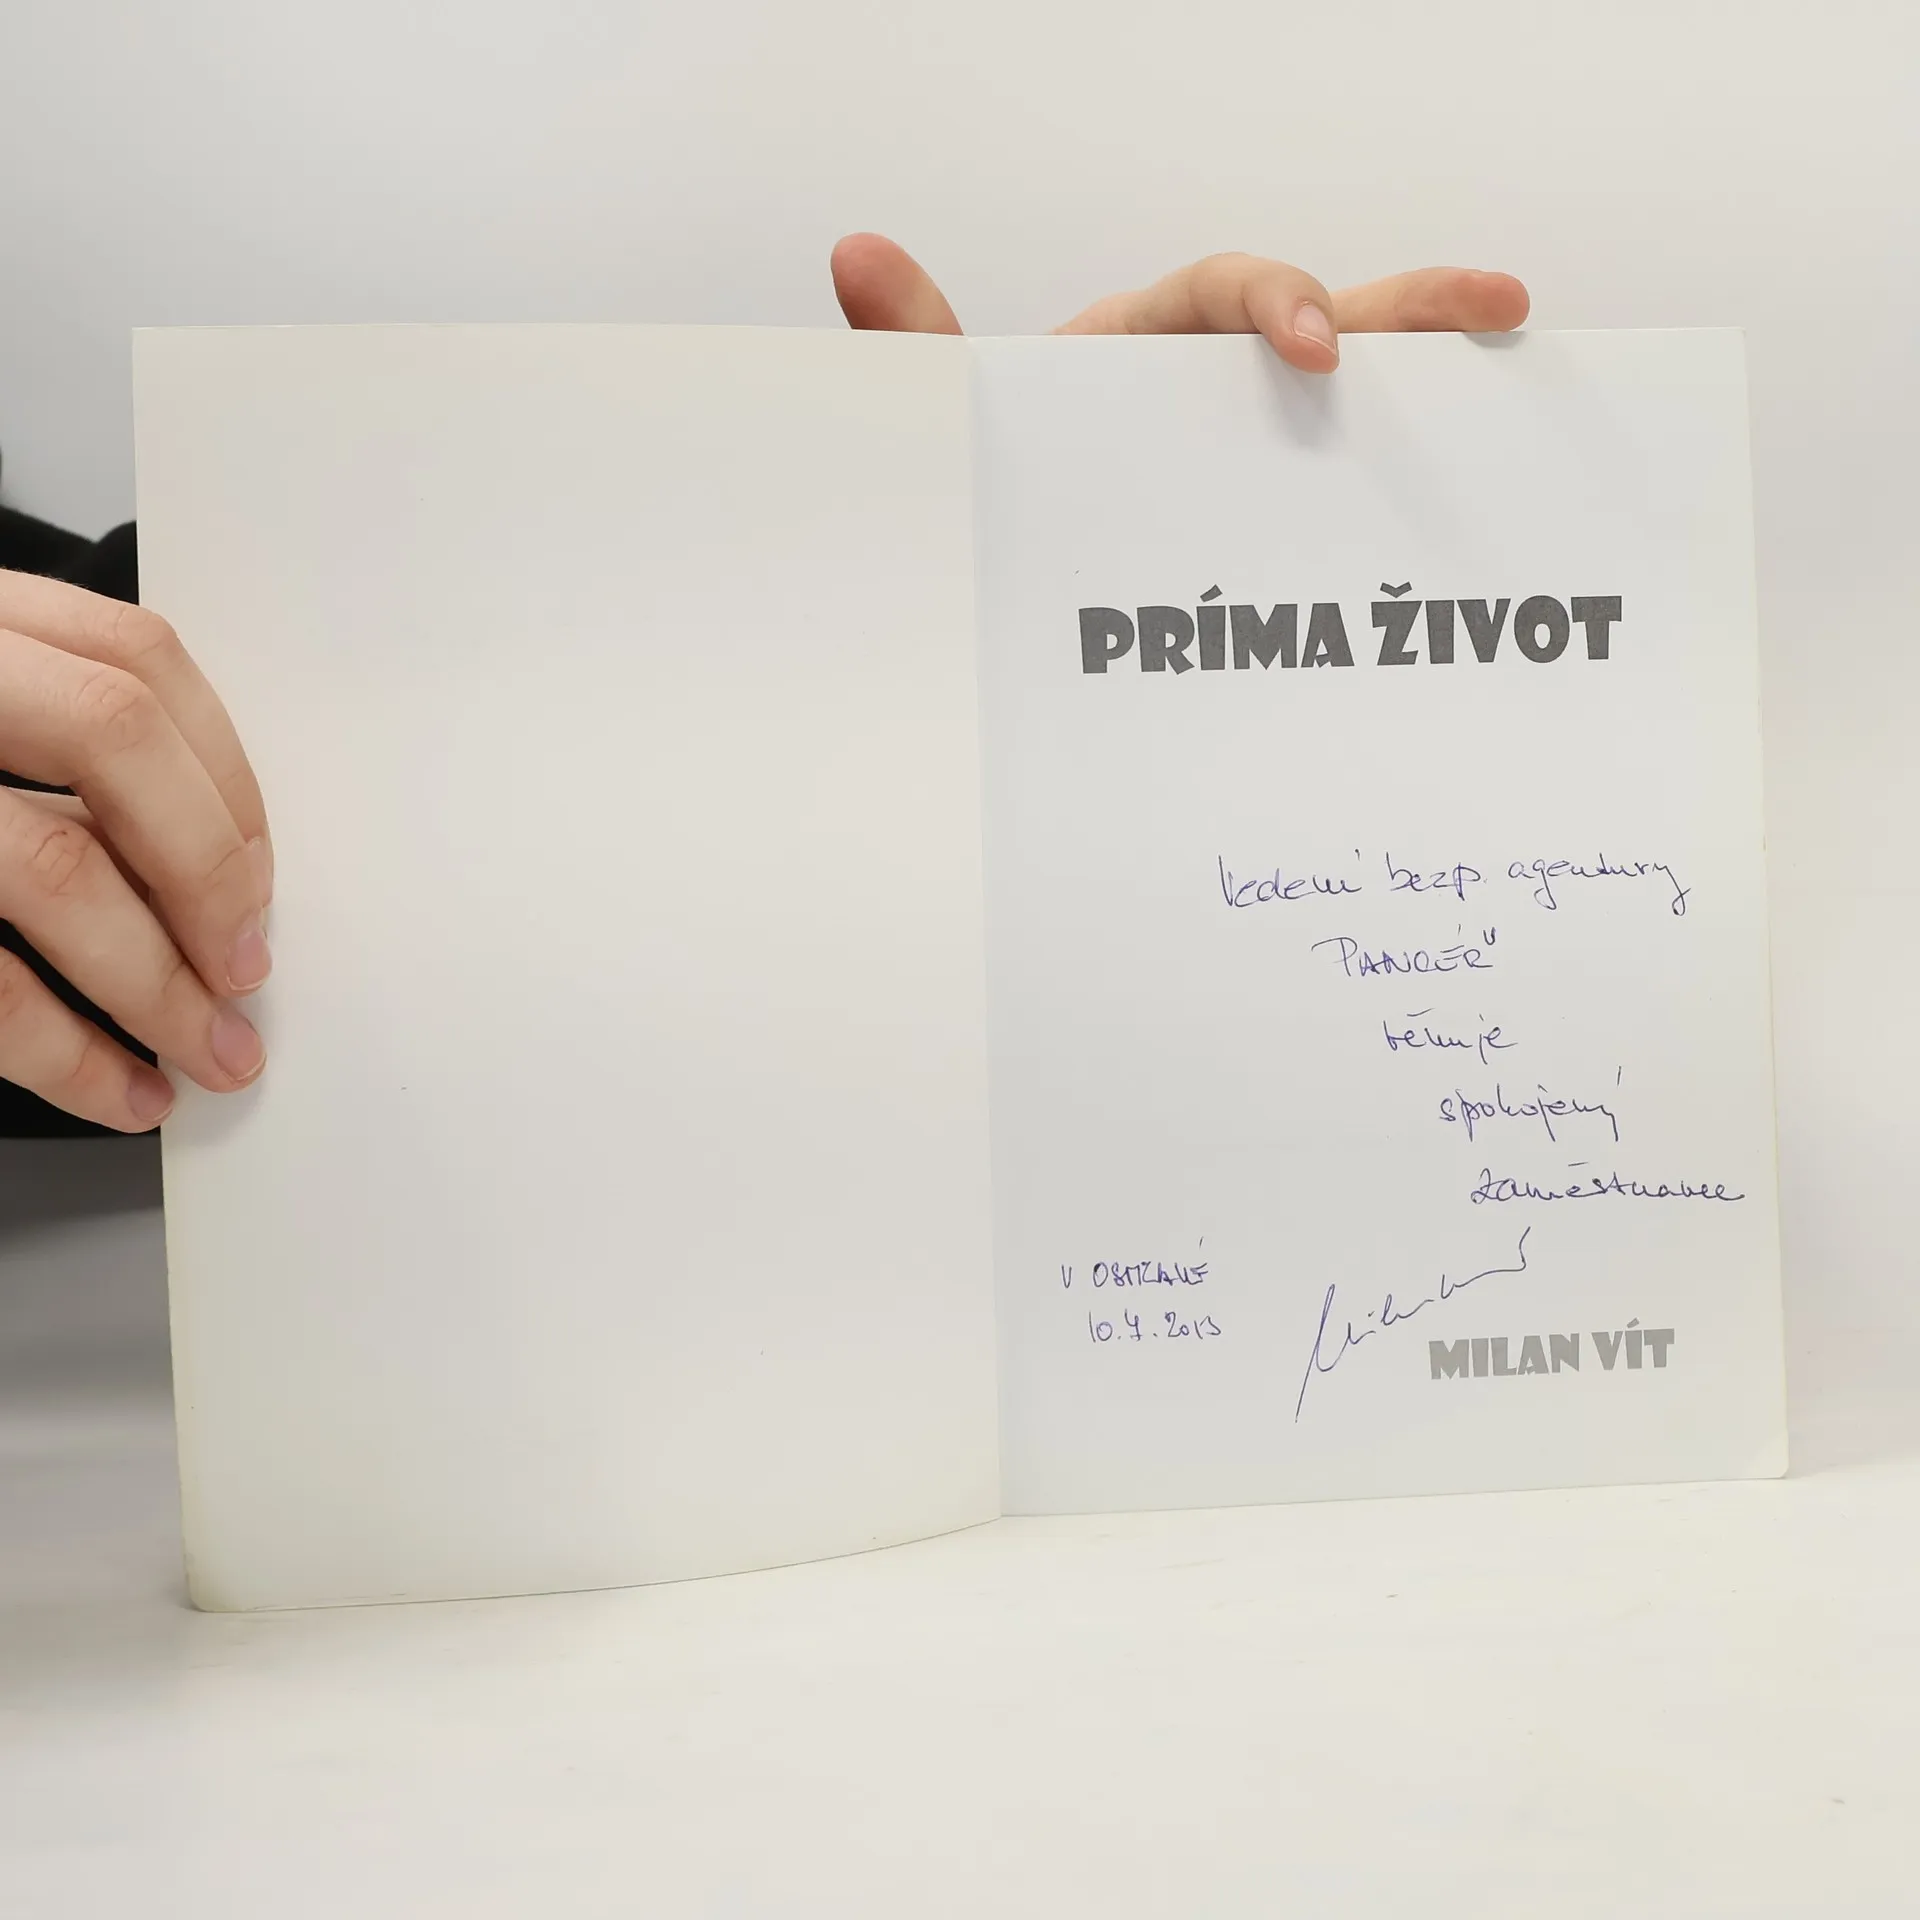 PRÍMA ŽIVOT
Vedení bezp. agentury
PANCÉŘ
věnuje
spokojený
zaměstnanec
V OSMZAVÉ
10.7.2013
MILAN VÍT